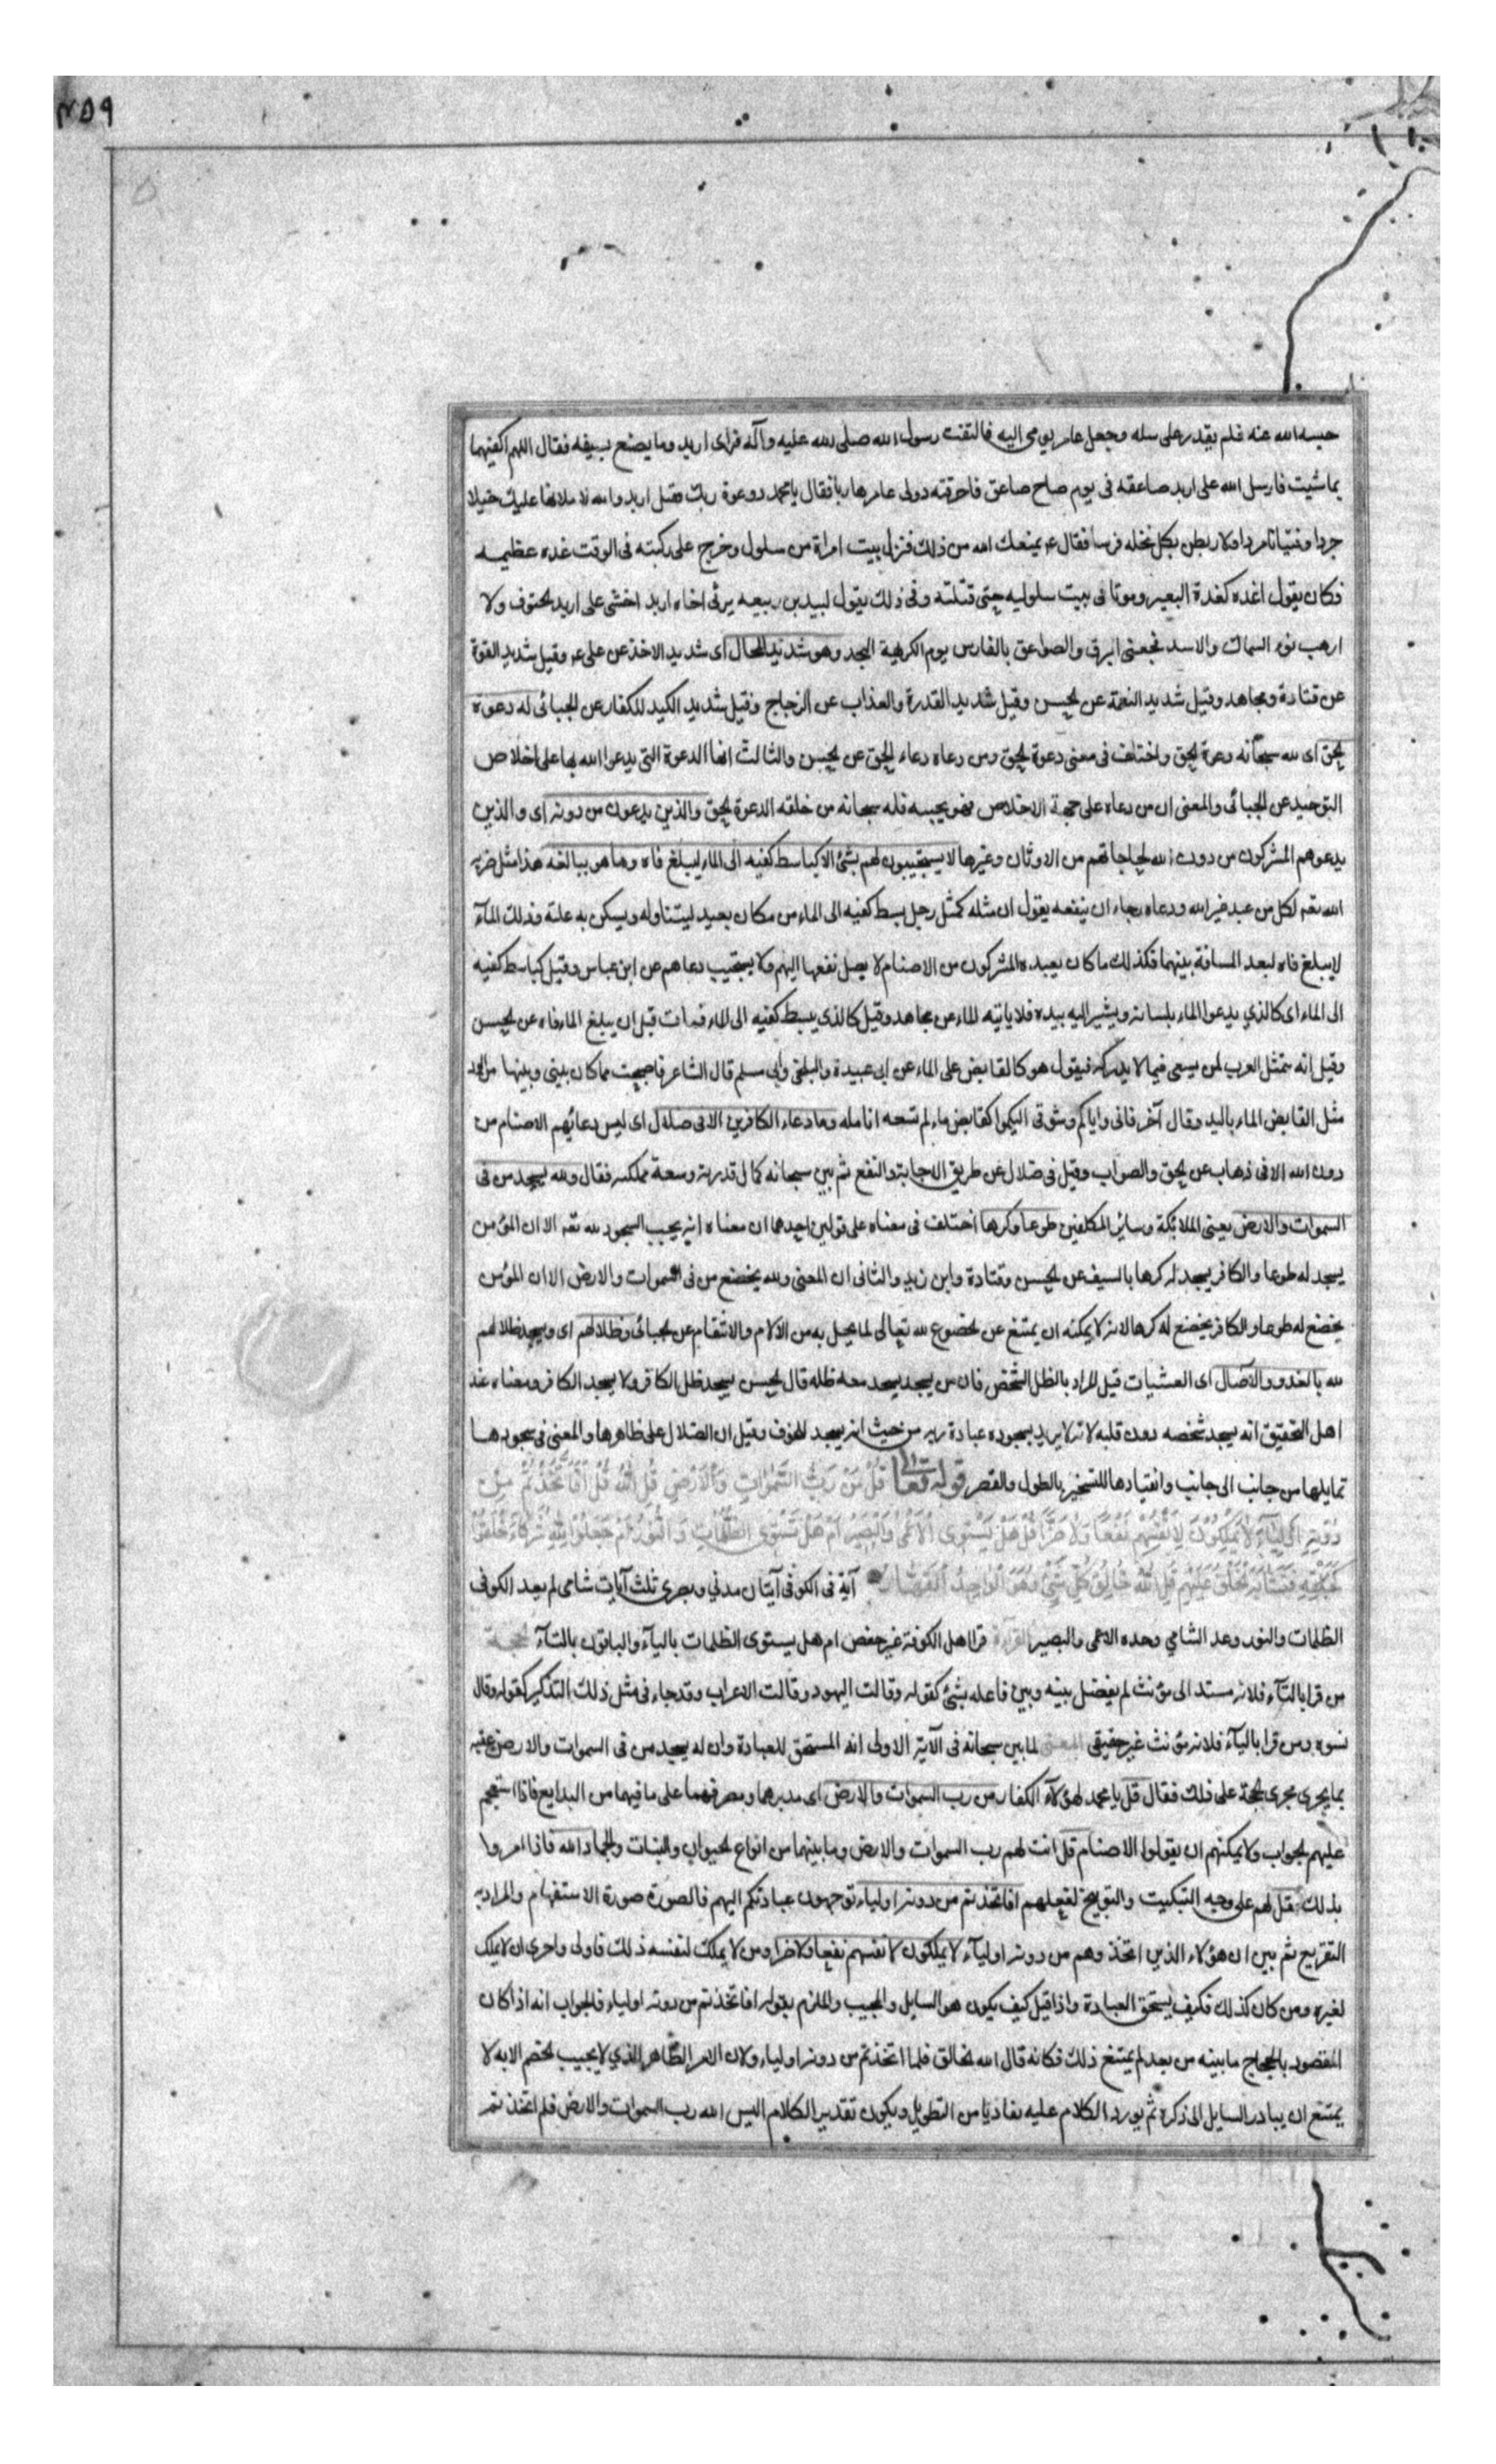 ٢٥٩
حبسه الله عنه فلم يقدر على سله وجعل عامر يومى اليه فالتفت رسول الله صلى الله عليه وآله فراى اربد وما يصنع بسيفه فقال اللهم اكفنيهما
بما شيت فارسل الله على اربد صاعقه فى يوم صاح صاعق فاحرقته وولى عامر هاربا فقال يا محمد دعوة ربك فقتل اربد والله لاملانها عليك خيلا
جردا وفتيانا مردا ولاربطن بكل نخله فرسا فقال ع يمنعك الله من ذلك فنزل بيت امراة من سلول وخرج على ركبته فى الوقت غده عظيمه
فكان يقول اغده كغدة البعير وموتا فى بيت سلوليه حتى قتلته وفى ذلك يقول لبيد بن ربيعه يرثى اخاه اربد اخشى على اربد الحتوف ولا
ارهب نوء السماك والاسد فجعنى البرق والصواعق بالفارس يوم الكريهة النجد وهو شديد المحال اى شديد الاخذ عن على ع وقيل شديد القوة
عن قتادة ومجاهد وقيل شديد النقمة عن الحسن وقيل شديد القدرة والعذاب عن الزجاج وقيل شديد الكيد للكفار عن الجبائى له دعوة
الحق اى لله سبحانه دعوة الحق واختلف فى معنى دعوة الحق ومن دعاه دعاء الحق عن الحسن والثالث انها الدعوة التى يدعوا الله بها على اخلاص
التوحيد عن الجبائى والمعنى ان من دعاه على جهة الاخلاص فهو يجيبه فله سبحانه من خلقه الدعوة الحق والذين يدعون من دونه اى والذين
يدعوهم المشركون من دون الله لحاجاتهم من الاوثان وغيرها لا يستجيبون لهم بشئ الا كباسط كفيه الى الماء ليبلغ فاه وما هو ببالغه هذا مثل ضربه
الله تعه لكل من عبد غير الله ودعاه رجاء ان ينفعه يقول ان مثله كمثل رجل بسط كفيه الى الماء من مكان بعيد ليتناوله ويسكن به غلته وذلك المآء
لا يبلغ فاه لبعد المسافة بينهما فكذلك ما كان يعبده المشركون من الاصنام لا يصل نفعها اليهم ولا يستجيب دعاهم عن ابن عباس وقيل كباسط كفيه
الى الماء اى كالذي يدعوا الماء بلسانه ويشير اليه بيده فلا ياتيه الماء عن مجاهد وقيل كالذى يبسط كفيه الى الماء فمات قبل ان يبلغ الماء فاه عن الحسن
وقيل انه تتمثل العرب لمن يسعى فيما لا يدركه فيقول هو كالقابض على الماء عن ابى عبيدة والبلخى وابى مسلم قال الشاعر فاصبحت مما كان بينى وبينها من الود
مثل القابض الماء باليد وقال آخر فانى واياكم وشوقى اليكموا كقابض ماء لم تسعه انامله وما دعاء الكافرين الا فى ضلال اى ليس دعائهم الاصنام من
دون الله الا فى ذهاب عن الحق والصواب وقيل فى ضلال عن طريق الاجابة والنفع ثم بين سبحانه كمال قدرته وسعة مملكته فقال ولله يسجد من فى
السموات والارض يعنى الملائكة وسائر المكلفين طوعا وكرها اختلف فى معناه على قولين احدهما ان معناه انه يجب السجود لله تعه الا ان المؤمن
يسجد له طوعا والكافر يسجد له كرها بالسيف عن الحسن وقتادة وابن زيد والثانى ان المعنى ولله يخضع من فى السموات والارض الا ان المؤمن
يخضع له طوعا والكافر يخضع له كرها لانه لا يمكنه ان يمتنع عن الخضوع لله تعالى لما يحل به من الآلام والاسقام عن الجبائى وظلالهم اى ويسجد ظلالهم
لله بالغدو والآصال اى العشيات قيل المراد بالظل الشخص فان من يسجد يسجد معه ظله قال الحسن يسجد ظل الكافر ولا يسجد الكافر ومعناه عند
اهل التحقيق انه يسجد شخصه دون قلبه لانه لا يريد بسجوده عبادة ربه من حيث انه يسجد للخوف وقيل ان الضلال على ظاهرها والمعنى فى سجودها
تمايلها من جانب الى جانب وانقيادها للتسخير بالطول والقصر قوله تعالى قُلْ مَنْ رَبُّ السَّمٰواتِ وَالْاَرْضِ قُلِ اللهُ قُلْ اَفَاتَّخَذْتُمْ مِنْ
دُونِهِ اَوْلِيَآءَ لَا يَمْلِكُونَ لِاَنْفُسِهِمْ نَفْعًا وَلَا ضَرًّا قُلْ هَلْ يَسْتَوِى الْاَعْمٰى وَالْبَصِيرُ اَمْ هَلْ تَسْتَوِى الظُّلُمَاتُ وَالنُّورُ اَمْ جَعَلُوا لِلّٰهِ شُرَكَآءَ خَلَقُوا
كَخَلْقِهِ فَتَشَابَهَ الْخَلْقُ عَلَيْهِمْ قُلِ اللهُ خَالِقُ كُلِّ شَىْءٍ وَهُوَ الْوَاحِدُ الْقَهَّارُ آية فى الكوفى آيتان مدنى وبصرى ثلث آيات شامى لم يعد الكوفى
الظلمات والنور وعد الشامي وحده الاعمى والبصير القراءة قرا اهل الكوفة غير حفص ام هل يستوى الظلمات باليآء والباقون بالتآء الحجة
من قرا بالتآء فلانه مسند الى مؤنث لم يفصل بينه وبين فاعله بشئ كقوله وقالت اليهود وقالت الاعراب وقد جاء فى مثل ذلك التذكير كقوله وقال
نسوه ومن قرا باليآء فلانه مؤنث غير حقيقى المعنى لما بين سبحانه فى الآية الاولى انه المستحق للعبادة وان له يسجد من فى السموات والارض عقبه
بما يجرى مجرى الحجة على ذلك فقال قل يا محمد لهؤلآء الكفار من رب السموات والارض اى مدبرهما ومصرفهما على ما فيهما من البدايع فاذا استعجم
عليهم الجواب ولا يمكنهم ان يقولوا الاصنام قل انت لهم رب السموات والارض وما بينهما من انواع الحيوان والنبات والجماد الله فاذا امروا
بذلك فقل لهم على وجه التبكيت والتوبيخ لفعلهم افاتخذتم من دونه اولياء توجهون عبادتكم اليهم فالصورة صورة الاستفهام والمراد به
التقريع ثم بين ان هؤلاء الذين اتخذوهم من دونه اوليآء لا يملكون لانفسهم نفعا ولا ضرا ومن لا يملك لنفسه ذلك فاولى واحرى ان لا يملك
لغيره ومن كان كذلك فكيف يستحق العبادة واذا قيل كيف يكون هو السايل والمجيب والملزم بقوله افاتخذتم من دونه اولياء فالجواب انه اذا كان
المقصود بالحجاج ما بينه من بعد لم يمتنع ذلك فكانه قال الله الخالق فلما اتخذتم من دونه اولياء ولان الامر الظاهر الذي لا يجيب الخصم الا به لا
يمتنع ان يبادر السايل الى ذكره ثم يورد الكلام عليه تفاديا من التطويل ويكون تقدير الكلام اليس الله رب السموات والارض فلم اتخذتم